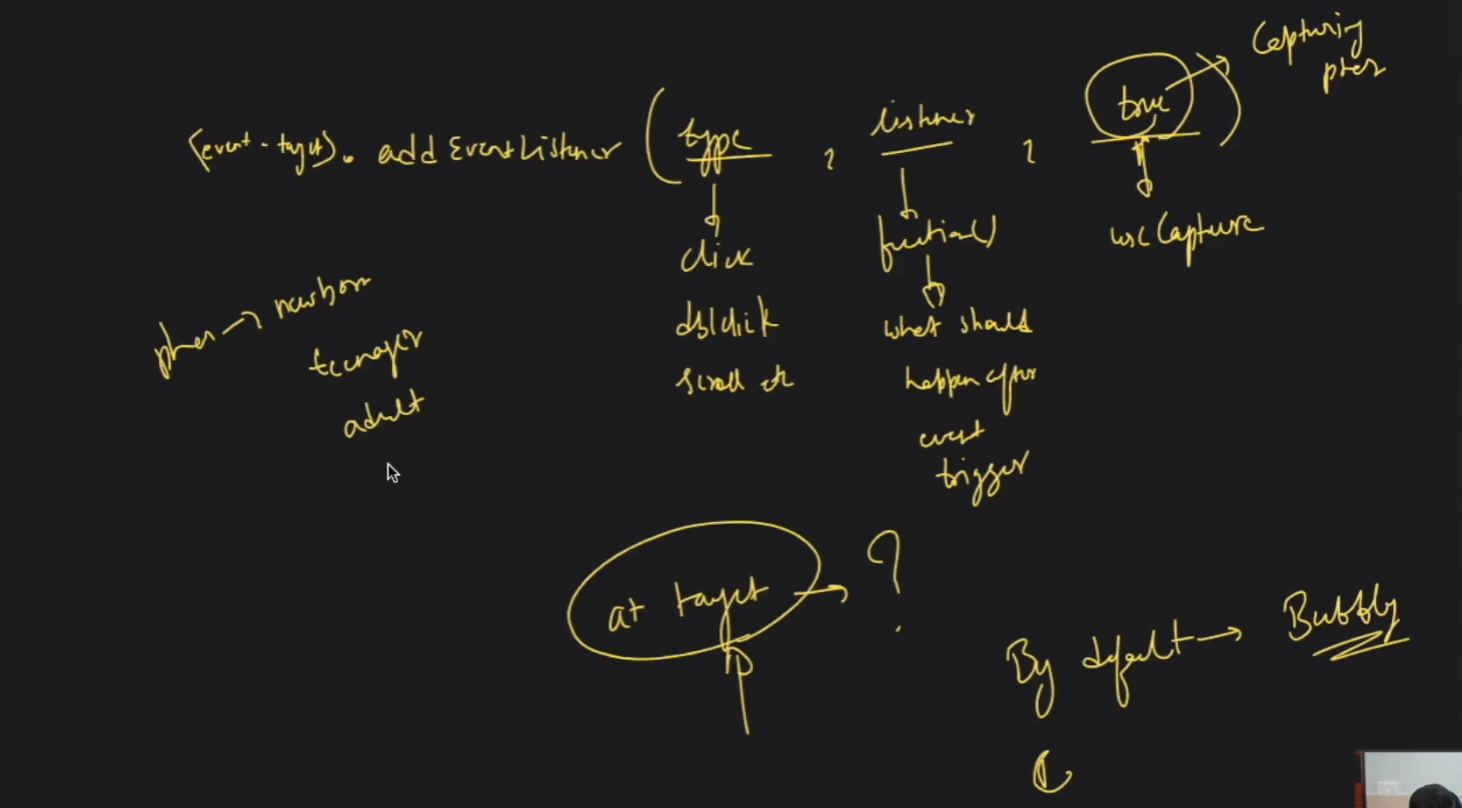 Capturing
phas
(event-target). addEventListener (type, listner, true)
click
dblclick
scroll etc
function()
what should
happen after
event
trigger
useCapture
phas → newborn
teenager
adult
at target → ?
By default → Bubbly